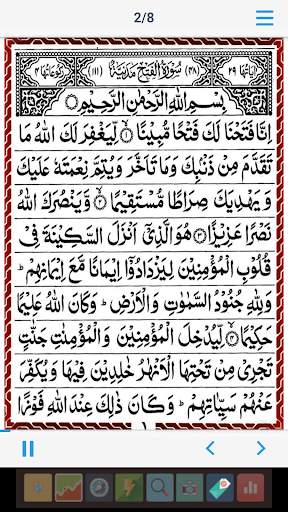 2/8
اٰيَاتُهَا ٢٩ (٤٨) سُوْرَةُ الْفَتْحِ مَدَنِيَّةٌ (١١١) رُكُوْعَاتُهَا ٤
بِسْمِ اللّٰهِ الرَّحْمٰنِ الرَّحِيْمِ
اِنَّا فَتَحْنَا لَكَ فَتْحًا مُّبِيْنًا ۙ﴿١﴾ لِّيَغْفِرَ لَكَ اللّٰهُ مَا
تَقَدَّمَ مِنْ ذَنْۢبِكَ وَمَا تَاَخَّرَ وَيُتِمَّ نِعْمَتَهٗ عَلَيْكَ
وَيَهْدِيَكَ صِرَاطًا مُّسْتَقِيْمًا ۙ﴿٢﴾ وَّيَنْصُرَكَ اللّٰهُ
نَصْرًا عَزِيْزًا ﴿٣﴾ هُوَ الَّذِيْۤ اَنْزَلَ السَّكِيْنَةَ فِيْ
قُلُوْبِ الْمُؤْمِنِيْنَ لِيَزْدَادُوْۤا اِيْمَانًا مَّعَ اِيْمَانِهِمْ ؕ
وَلِلّٰهِ جُنُوْدُ السَّمٰوٰتِ وَالْاَرْضِ ؕ وَكَانَ اللّٰهُ عَلِيْمًا
حَكِيْمًا ۙ﴿٤﴾ لِّيُدْخِلَ الْمُؤْمِنِيْنَ وَالْمُؤْمِنٰتِ جَنّٰتٍ
تَجْرِيْ مِنْ تَحْتِهَا الْاَنْهٰرُ خٰلِدِيْنَ فِيْهَا وَيُكَفِّرَ
عَنْهُمْ سَيِّاٰتِهِمْ ؕ وَكَانَ ذٰلِكَ عِنْدَ اللّٰهِ فَوْزًا
١